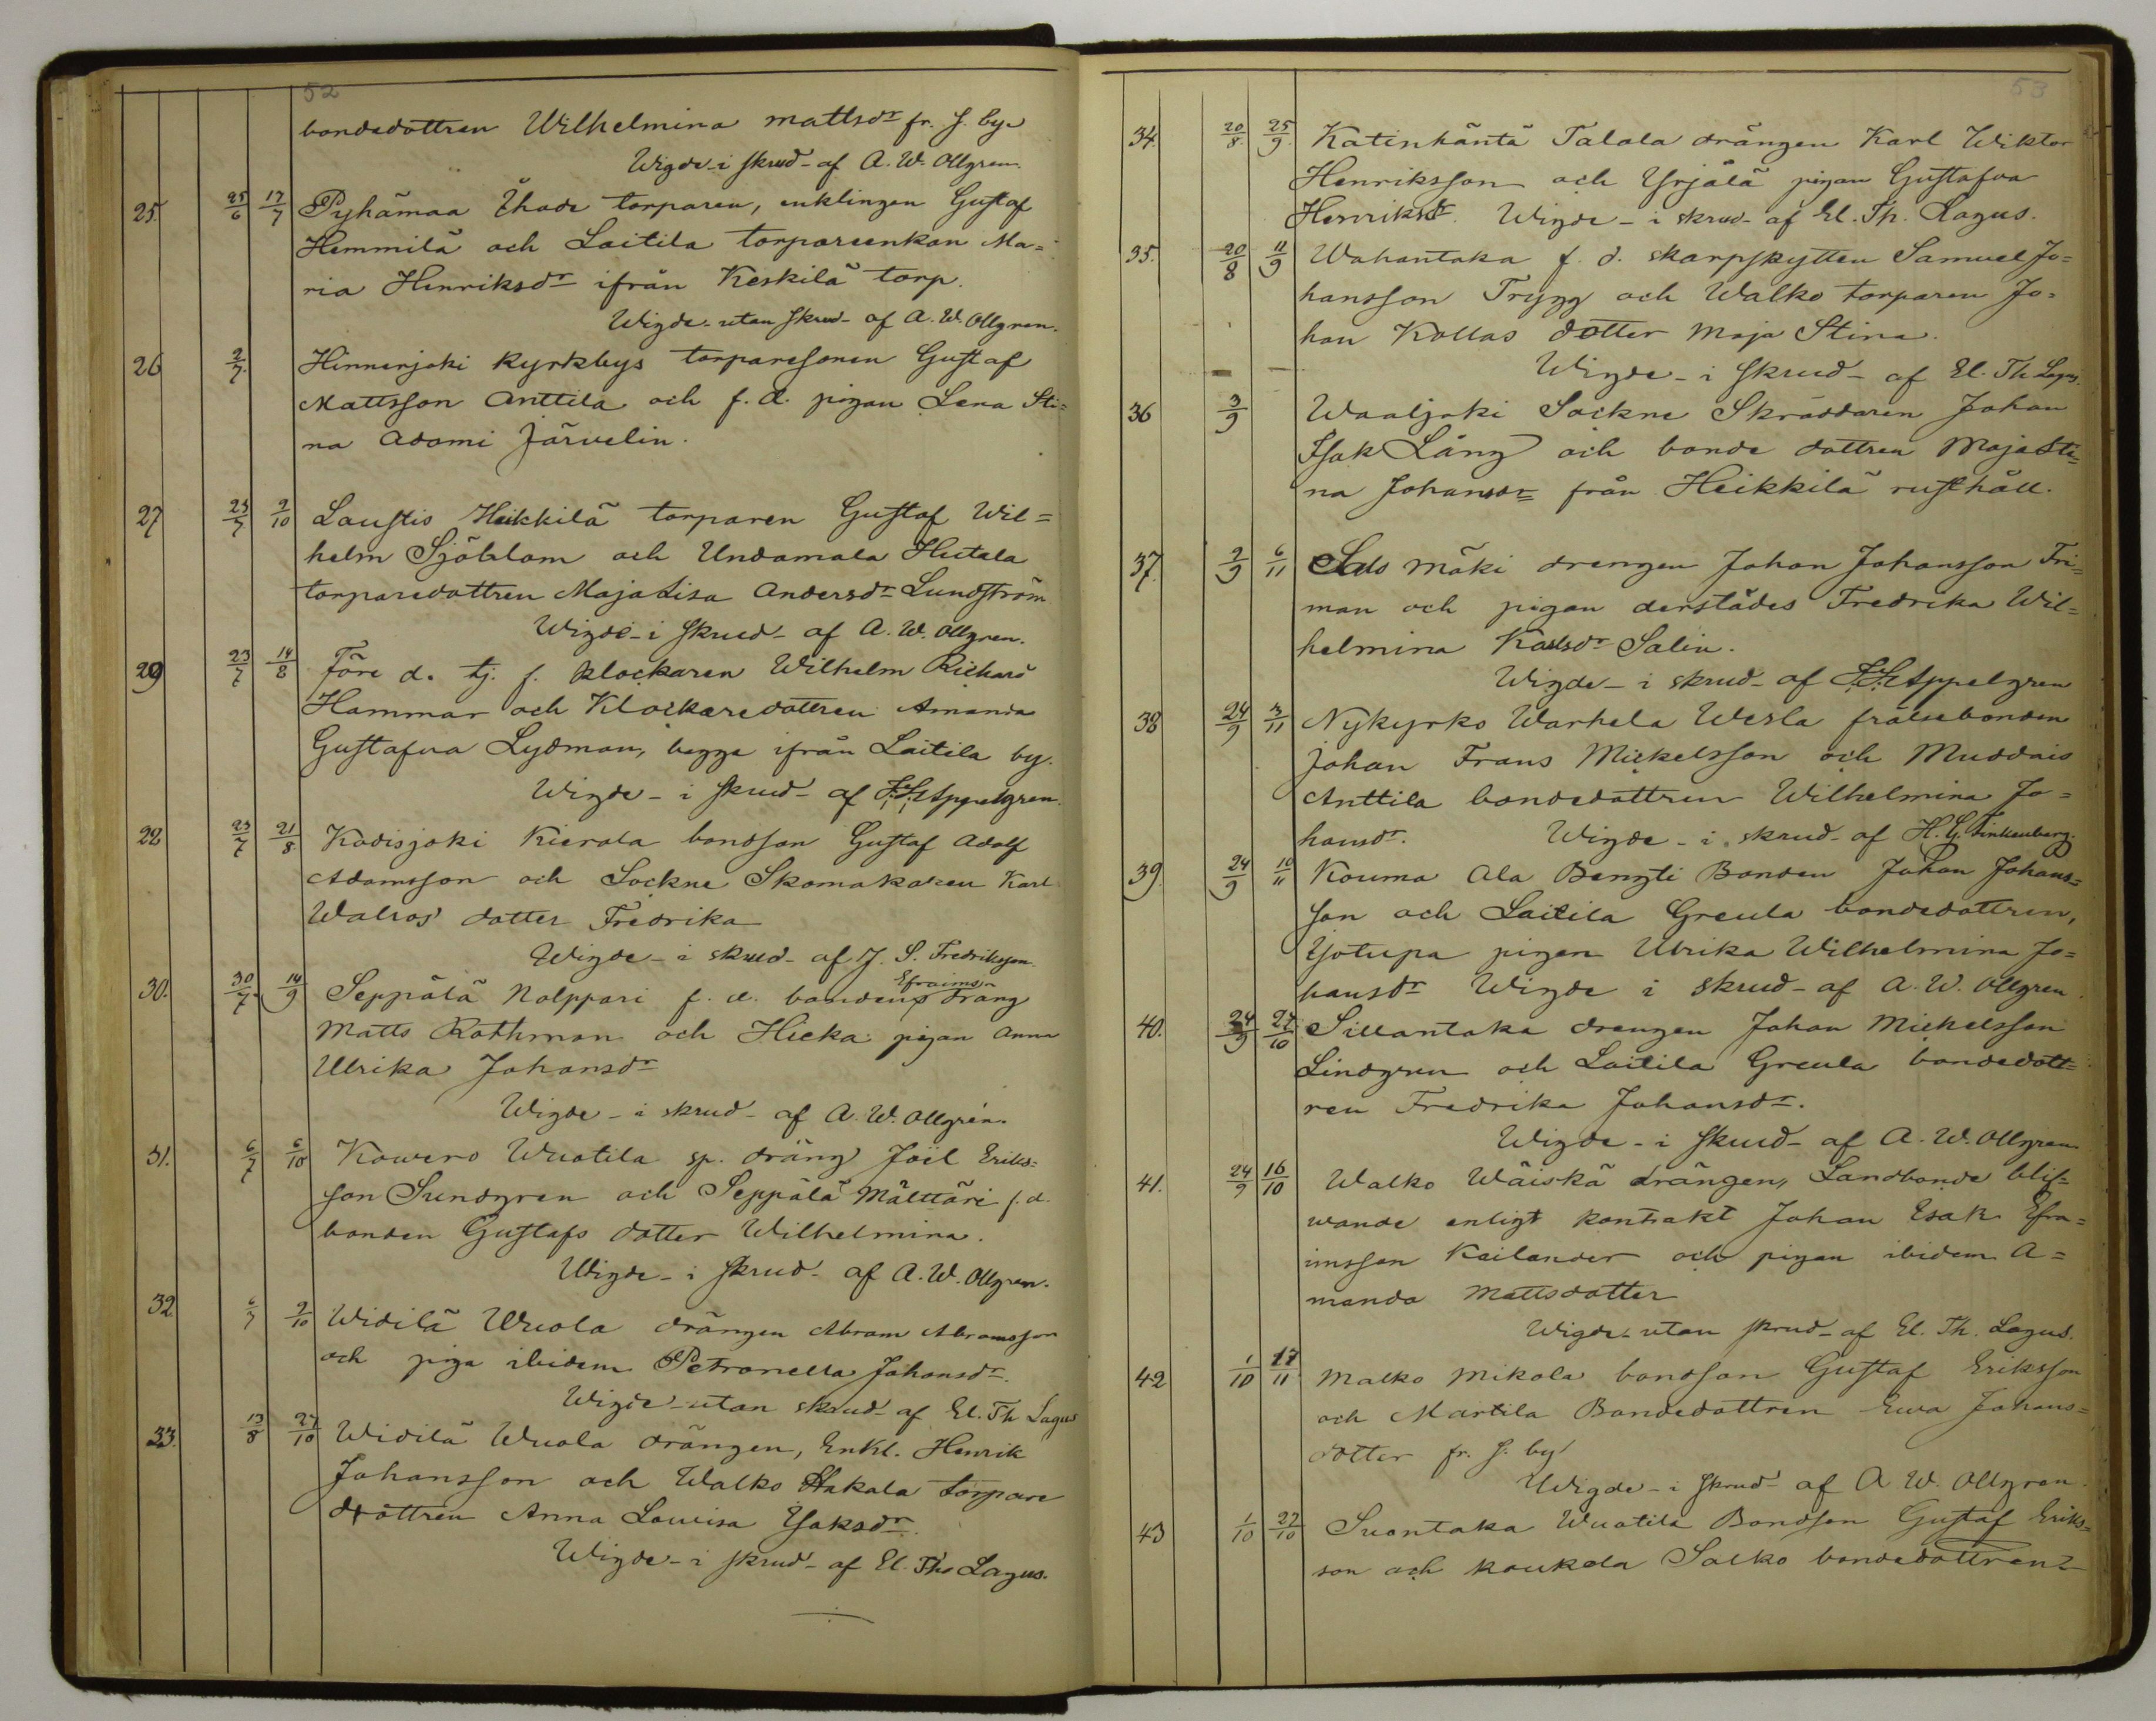 52
bondedottren Wilhelmina mattsdr fr. s. by
Wigde - i skrud - af A. W. Ollgren.
25. 25/6 17/7 Pyhämaa Ihode torparen, enklingen Gustaf
Hemmilä och Laitila torpareenkan Ma=
ria Henriksdr ifrån Keskilä torp.
Wigde - utan skrud - af A. W. Ollgren.
26 2/7. Hinnerjoki kyrkbys torparesonen Gustaf
Mattsson Anttila och f. d. pigan Lena Sti=
na Adami Järvelin.
27 23/7 9/10 Laustis Heikkilä torparen Gustaf Wil=
helm Sjöblom och Undamala Hutala
torparedottren Maja Lisa Andersdr Lundström
Wigde - i skrud - af A. W. Ollgren.
29 23/7 14/8 Före d. tj. f. klockaren Wilhelm Richard
Hammar och Klockaredottren Amanda
Gustafva Lydman, begge ifrån Laitila by.
Wigde - i skrud - af Appelgren.
28 23/7 21/8 Kodisjoki Kierola bondson Gustaf Adolf
Adamsson och Sockne Skomakaren Karl
Walros' dotter Fredrika
Wigde - i skrud - af J. S. Fredriksson.
30. 30/7. 14/9 Seppälä Nolppari f. d. bonden Efraimsn dräng
Matts Rothman och Hieka pigan Anna
Ulrika Johansdr
Wigde - i skrud - af A. W. Ollgrén.
31. 6/7 6/10 Kowero Wuotila sp. dräng Joël Eriks=
son Sundgren och Seppälä Mälttäri f. d.
bonden Gustafs dotter Wilhelmina.
Wigde - i skrud - af A. W. Ollgren.
32. 6/7 9/10 Widilä Wuola drängen Abram Abramsson
och piga ibidem Petronella Johansdr.
Wigde - utan skrud - af El. Th Lagus
33. 13/8 27/10 Widilä Wuola drängen, Enkl. Henrik
Johansson och Walko Hakala torpare
dottren Anna Lowisa Isaksdr.
Wigde - i skrud - af El. Th. Lagus.
53
34. 20/8. 25/9. Katinhäntä Talola drängen Karl Wiktor
Henriksson och Yrjälä pigan Gustafva
Henriksdr. Wigde - i skrud - af El. Th. Lagus.
35. 20/8 11/9 Wahantaka f. d. skarpskytten Samuel Jo=
hansson Trygg och Walko torparen Jo=
han Kollas dotter Maja Stina.
Wigde - i skrud - af El. Th Lagus.
36 3/9 Waaljoki Sockne Skräddaren Johan
Isak Lång och bonde dottren Maja Sti=
na Johansdr från Heikkilä rusthåll.
37. 2/9 6/11 mäki drengen Johan Johansson Fri=
man och pigan derstädes Fredrika Wil=
helmina Karlsdr Salin.
Wigde - i skrud - af Appelgren
38 24/9 3/11 Nykyrko Warhela Wesla frälsebonden
Johan Frans Mickelsson och Muddais
Anttila bondedottren Wilhelmina Jo=
hansdr. Wigde - i skrud - af H. G. Finkenberg.
39. 24/9 10/11 Kouma Ala Bengti Bonden Johan Johans=
son och Laitila Greula bondedottren,
pigan Ulrika Wilhelmina Jo=
hansdr Wigde i skrud - af A. W. Ollgren.
40. 24/9 27/10 Sillantaka drengen Johan Mickelsson
Lindgren och Laitila Greula bondedott=
ren Fredrika Johansdr.
Wigde - i skrud - af A. W. Ollgren
41. 24/9 16/10 Walko Wäiskä drängen, Landbonde blif=
wande enligt kontrakt Johan Esak Efra=
imsson Kailander och pigan ibidem A=
manda Mattsdotter
Wigde - utan skrud - af El. Th. Lagus.
42 1/10 17/11 Malko Mikola bondson Gustaf Eriksson
och Martila Bondedottren Ewa Johans=
dotter fr. s. by
Wigde - i skrud - af A. W. Ollgren.
43 1/10 27/10 Suontaka Wuotila Bondson Gustaf Eriks=
son och kaukola Salko bondedottren